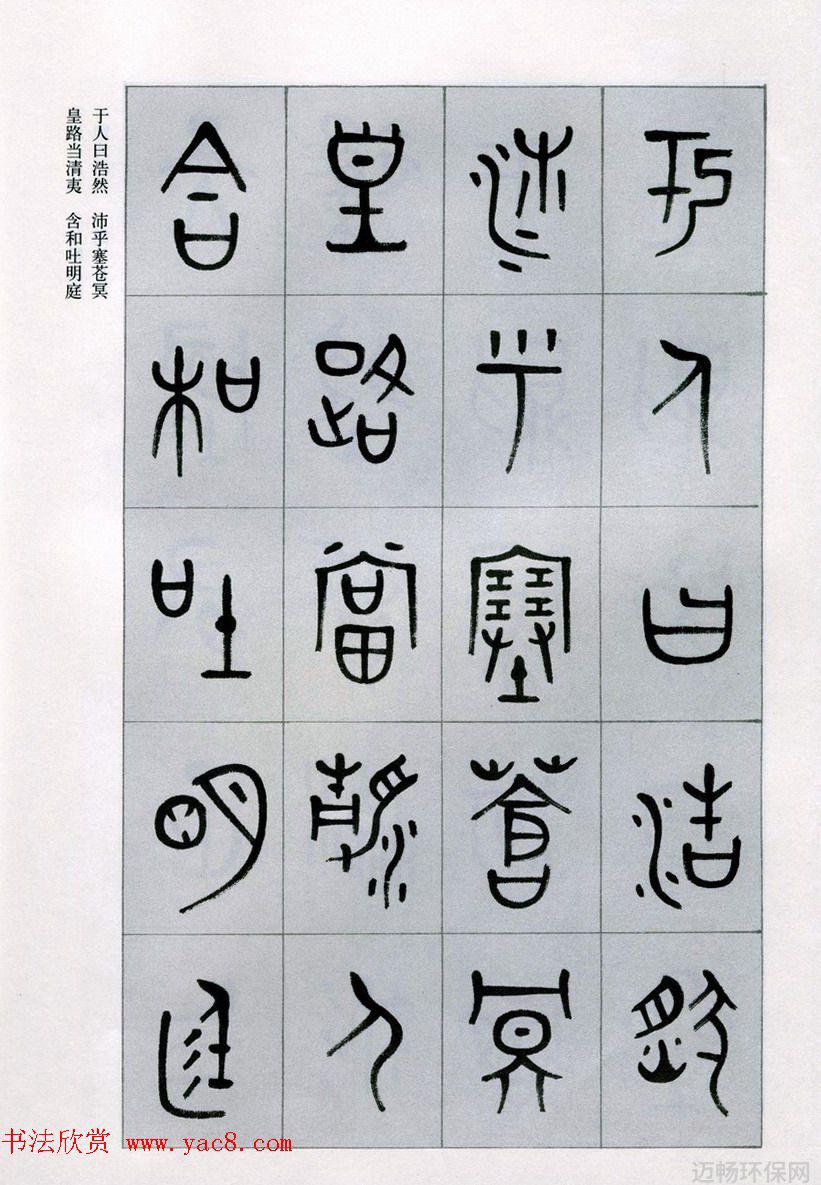 于人曰浩然
沛乎塞蒼冥
皇路當清夷
含和吐明庭
于人曰浩然 沛乎塞苍冥
皇路当清夷 含和吐明庭
书法欣赏 www.yac8.com
迈畅环保网